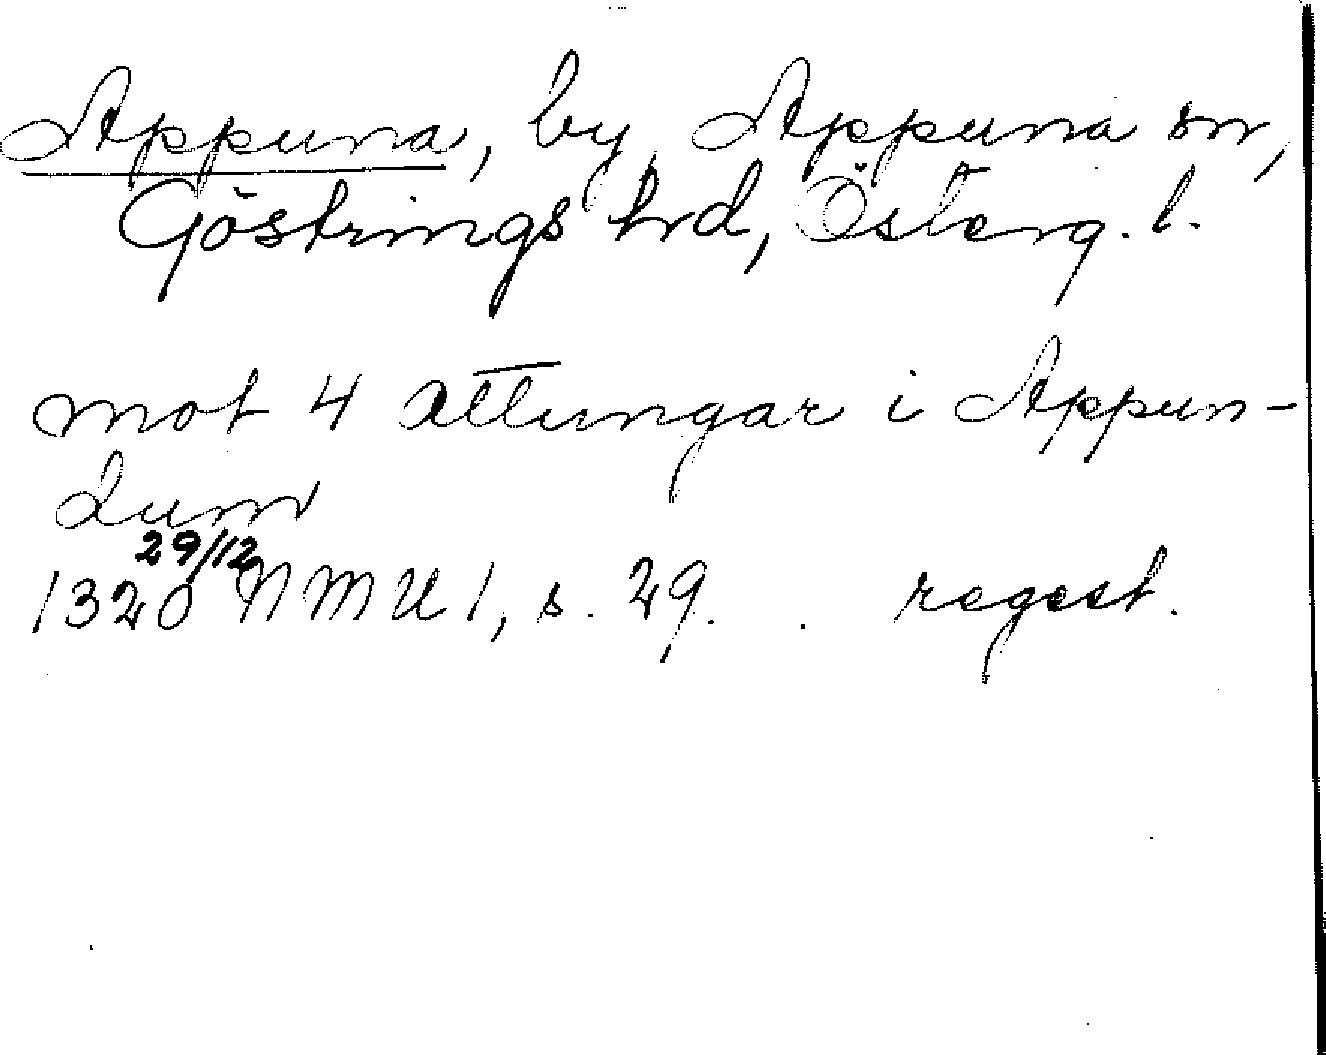 Appuna, by, Appuna sn,
Göstrings hrd, Österg. l.
mot 4 attungar i Appun-
dum
29/12
1320 NMU 1, s. 29. . regest.